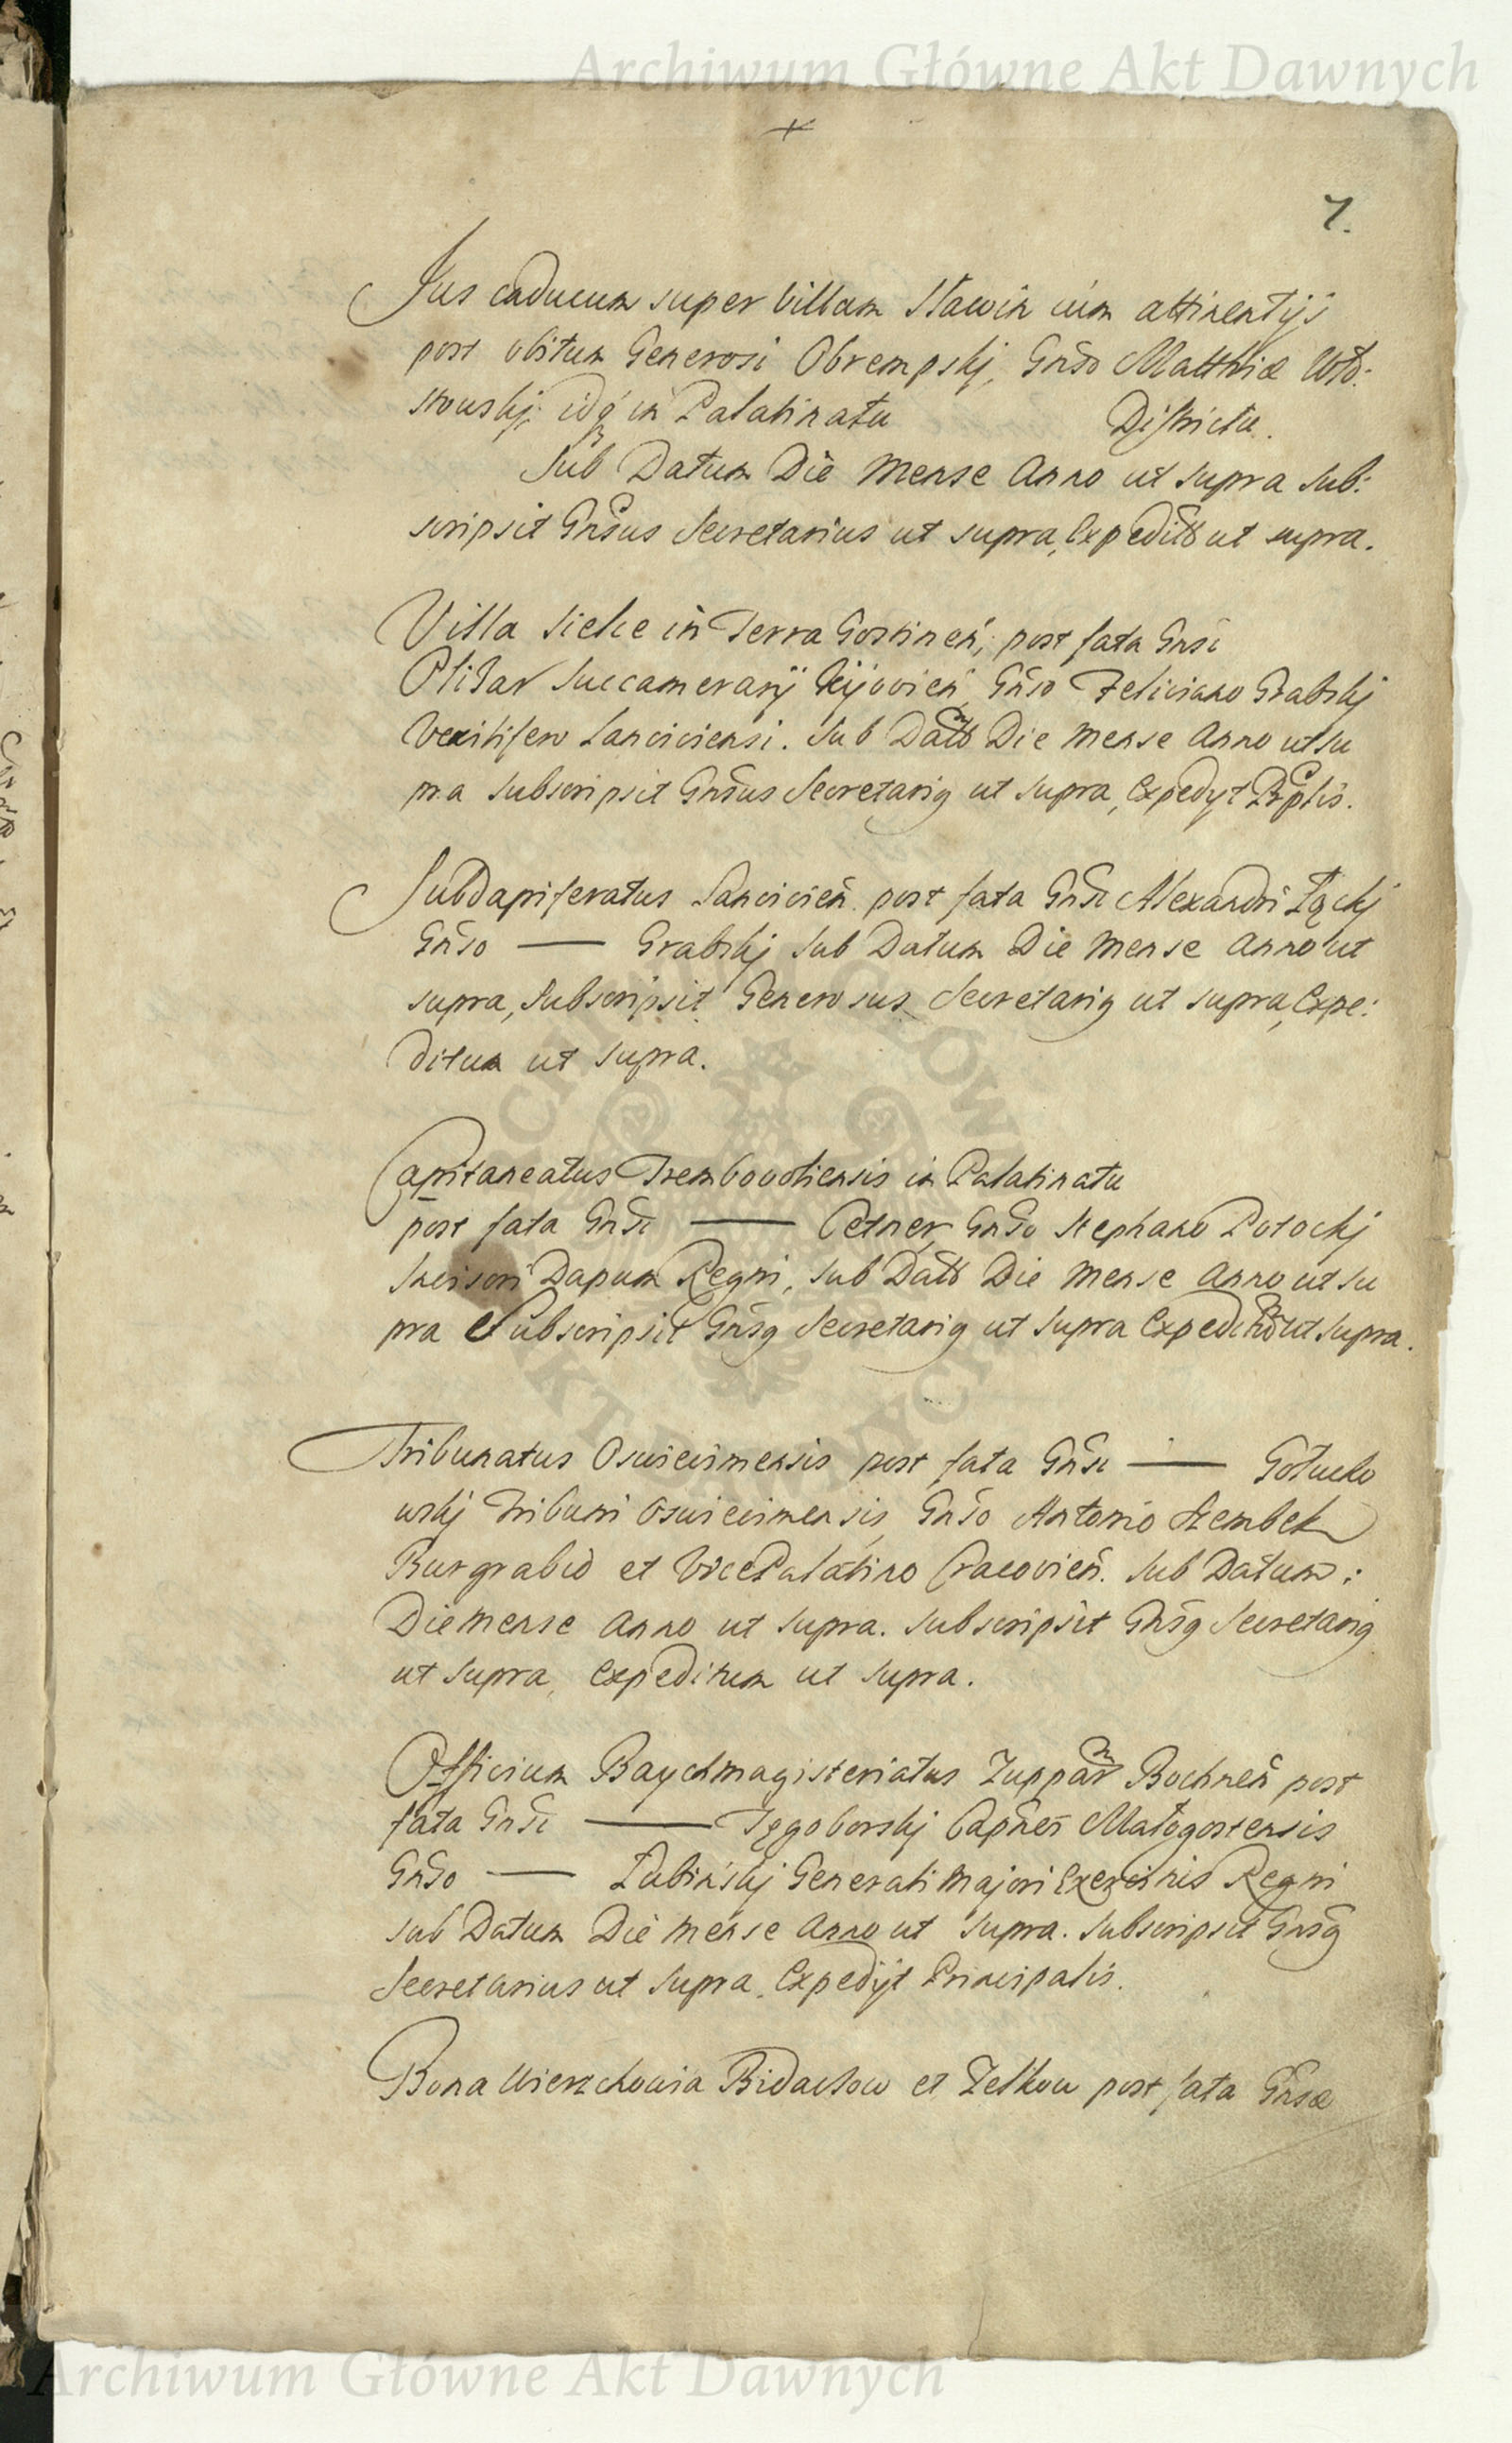 Archiwum Główne Akt Dawnych
7.
Jus caducum super Villam Stawin cum attinentijs
post obitum Generosi Obrempskj, Gñso Matthiæ Wło:
stowskj, idq in Palatinatu Districtu.
Sub Datum Die Mense Anno ut supra sub:
scripsit Gñsus Secretarius ut supra, Expedit ut supra.
Villa Sielce in Terra Gostinen, post fata Gnsi
Olidar Succamerarij Kijovien, Gñso Feliciano Grabskj
Vexilifero Lanciciensi. Sub Datt Die Mense Anno ut su
pra subscripsit Gñsus Secretarig ut supra, Expedyt Prplis.
Subdapiferatus Lancicień post fata Gñsi Alexandri Łąckj
Gñso — Grabskj sub Datum Die Mense Anno ut
supra, subscripsit Generosus Secretarig ut supra, Expe:
ditum ut supra.
Capitaneatus Trembovoliensis in Palatinatu
post fata Gñsi — Cetner, Gñso Stephano Potockj
Incisori Dapum Regni, sub Datt Die Mense Anno ut su
pra Subscripsit Gñsg Secretarig ut supra Expedit ut supra.
Tribunatus Oswiecimensis post fata Gñsi — Gołucho
wskj Tribuni Oswiecimensis, Gñso Antonio Stembek
Burgrabio et VicePalatino Cracovień. Sub Datum:
Die Mense Anno ut supra. Subscripsit Gñsg Secretarig
ut supra, Expeditum ut supra.
Officium Baychmagisteriatus Zuppar Bochneń post
fata Gñsi — Tęgoborskj Capnei Małogostensis
Gñso — Łubińskj Generali Majori Exercitus Regni
sub Datum Die Mense Anno ut supra. Subscripsit Gñsg
Secretarius ut supra. Expedijt Principalis.
Bona Wierzchowia Bidaczow et Zełkow post fata Gnsæ
Archiwum Główne Akt Dawnych